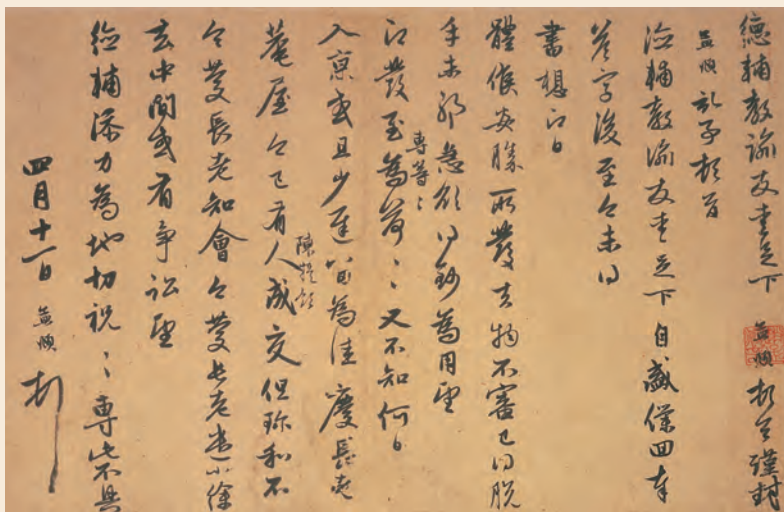 德輔教諭友愛足下 孟頫 頓首謹封
孟頫 記事頓首
德輔教諭友愛足下自盛僕回奉
答字後至今未得
書想即日
體候安勝所發去物不審已得脫
手未耶急欲得鈔為用望
專等〻
即發至為荷〻又不知何日
入京或且少遲為佳慶長老
菴屋今已有人成交但珎和不
陳提領
令慶長老知會今慶長老遣小徐
去中間或有爭訟望
德輔添力為地切祝〻專此不具
四月十一日 孟頫 頓首